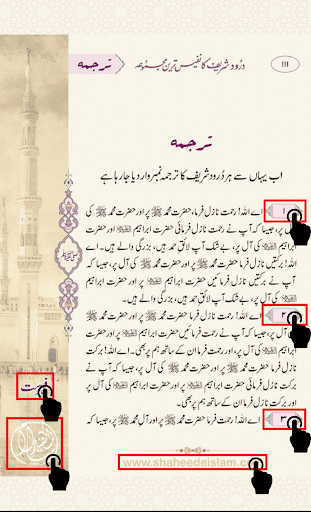 ۱۱۱ درُود شریف کا نفیس ترین مجموعہ ترجمہ
ترجمہ
اب یہاں سے ہر دُرود شریف کا ترجمہ نمبر وار دیا جا رہا ہے
۱ اے اللہ! رحمت نازل فرما، حضرت محمد ﷺ پر اور حضرت محمد ﷺ کی
آل پر، جیسا کہ آپ نے رحمت نازل فرمائی حضرت ابراہیم پر اور حضرت
ابراہیم کی آل پر، بے شک آپ لائقِ حمد ہیں، بزرگی والے ہیں۔ اے
اللہ! برکتیں نازل فرما حضرت محمد ﷺ پر اور حضرت محمد ﷺ کی آل پر، جیسا کہ
آپ نے برکتیں نازل فرمائیں حضرت ابراہیم پر اور حضرت ابراہیم
کی آل پر، بے شک آپ لائقِ حمد ہیں، بزرگی والے ہیں۔
۲ اے اللہ! رحمت نازل فرما حضرت محمد ﷺ پر اور حضرت محمد ﷺ کی
آل پر، جیسا کہ آپ نے رحمت نازل فرمائی حضرت ابراہیم پر اور حضرت ابراہیم
کی آل پر، اور رحمت فرما ان کے ساتھ ہم پر بھی۔ اے اللہ! برکت
نازل فرما حضرت محمد ﷺ پر اور حضرت محمد ﷺ کی آل پر، جیسا کہ آپ نے
برکت نازل فرمائی حضرت ابراہیم پر اور حضرت ابراہیم کی آل پر اور
برکت نازل فرما ان کے ساتھ ہم پر بھی۔
۳ اے اللہ! رحمت نازل فرما حضرت محمد ﷺ پر اور آلِ محمد ﷺ پر، جیسا کہ
فہرست
www.shaheedeislam.co